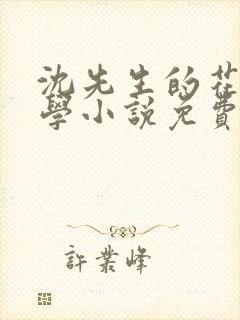 沈先生的花
學小說免費
許業峰